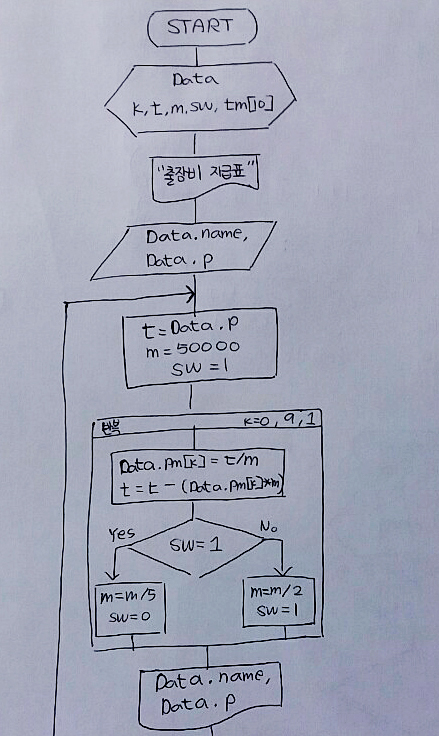 START
Data
k, t, m, sw, tm[10]
"출장비 지급표"
Data.name,
Data.p
t=Data.p
m=50000
sw=1
반복 k=0, 9, 1
Data.pm[k] = t/m
t=t-(Data.pm[k]*m)
Yes
sw=1
No
m=m/5
sw=0
m=m/2
sw=1
Data.name,
Data.p